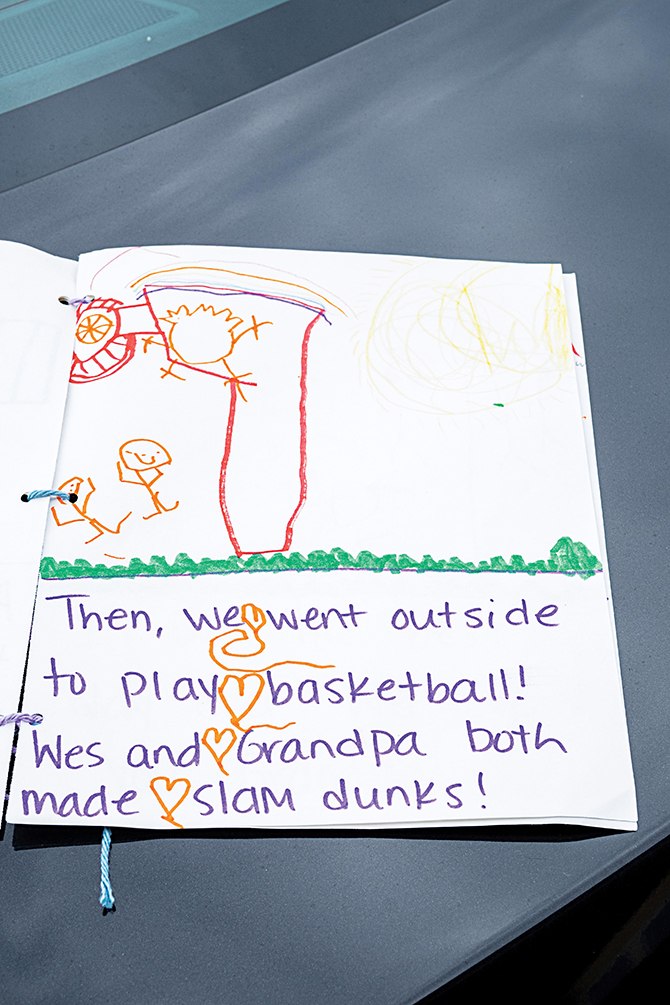 Then, we went outside
to play basketball!
Wes and Grandpa both
made slam dunks!